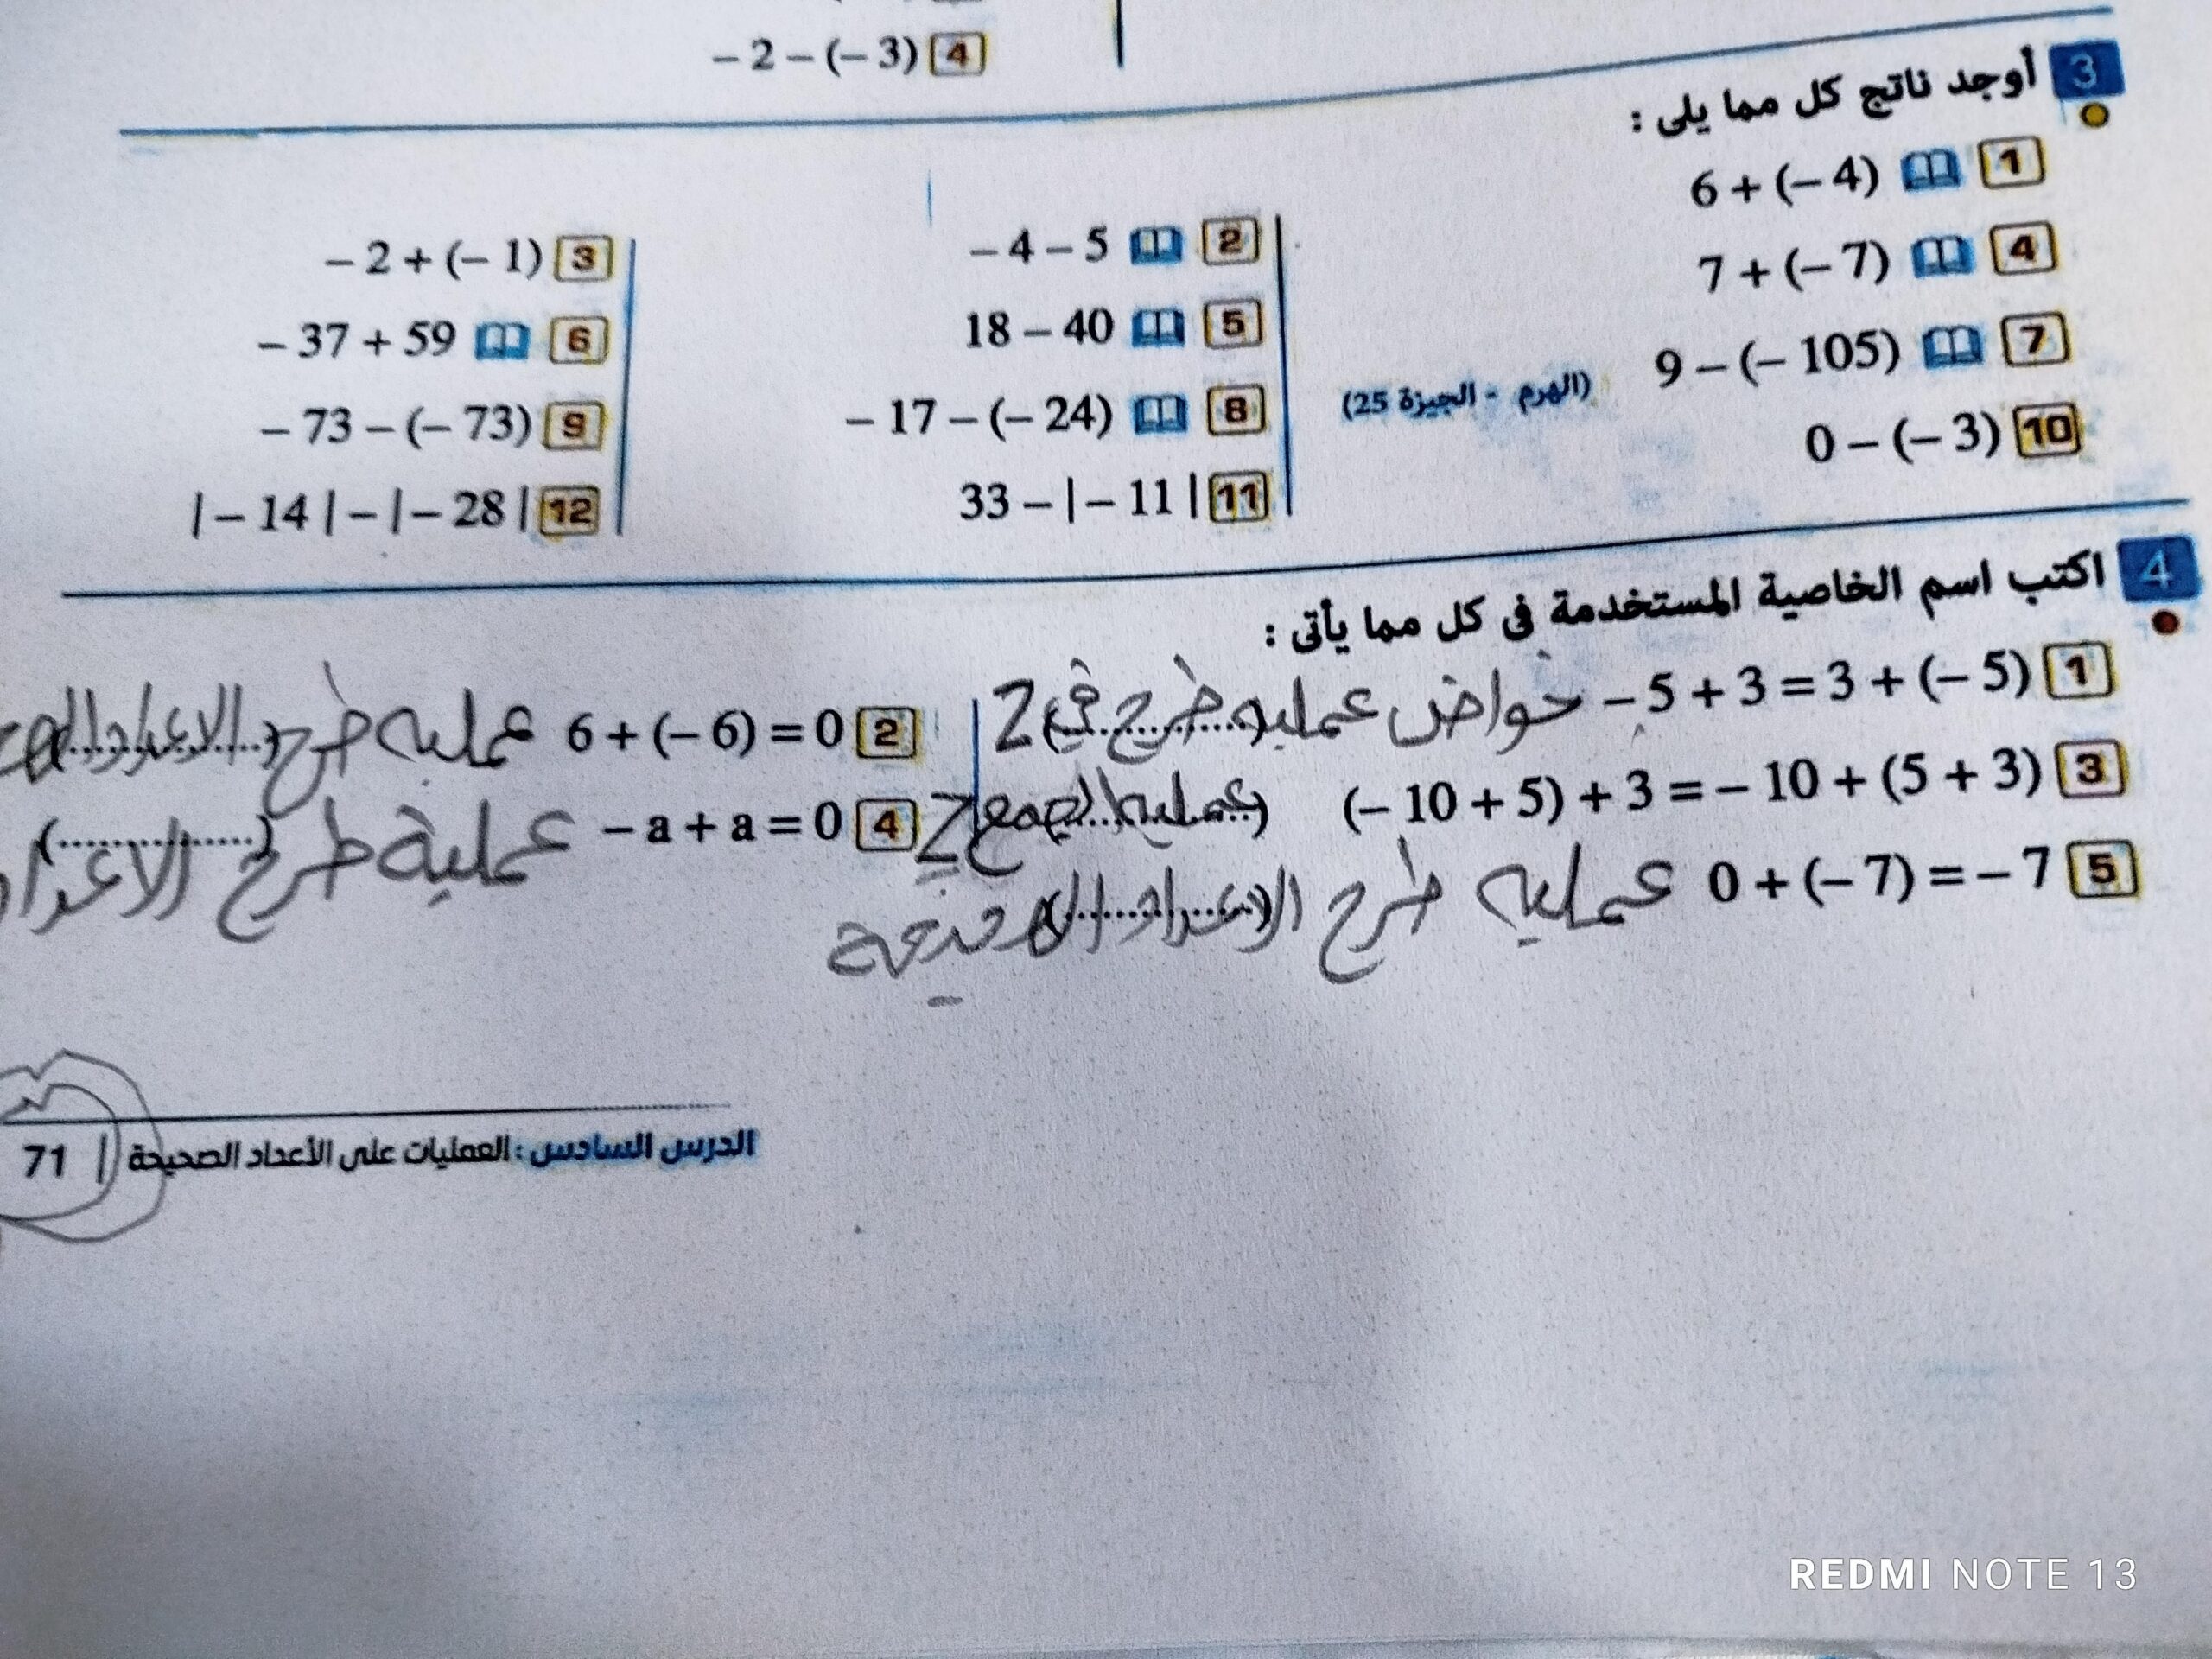 – 2 – (– 3) 4
3 أوجد ناتج كل مما يلى :
1 6 + (– 4)
2 – 4 – 5
3 – 2 + (– 1)
4 7 + (– 7)
5 18 – 40
6 – 37 + 59
7 9 – (– 105) (الهرم - الجيزة 25)
8 – 17 – (– 24)
9 – 73 – (– 73)
10 0 – (– 3)
11 33 – | – 11 |
12 | – 14 | – | – 28 |
4 اكتب اسم الخاصية المستخدمة فى كل مما يأتى :
1 – 5 + 3 = 3 + (– 5) خواض عمليه طرح في Z
2 6 + (– 6) = 0 عمليه طرح الاعداد
3 (– 10 + 5) + 3 = – 10 + (5 + 3) عمليه الجمع Z
4 – a + a = 0 عملية طرح الاعداد
5 0 + (– 7) = – 7 عمليه طرح الاعداد
الدرس السادس : العمليات على الأعداد الصحيحة | 71
REDMI NOTE 13